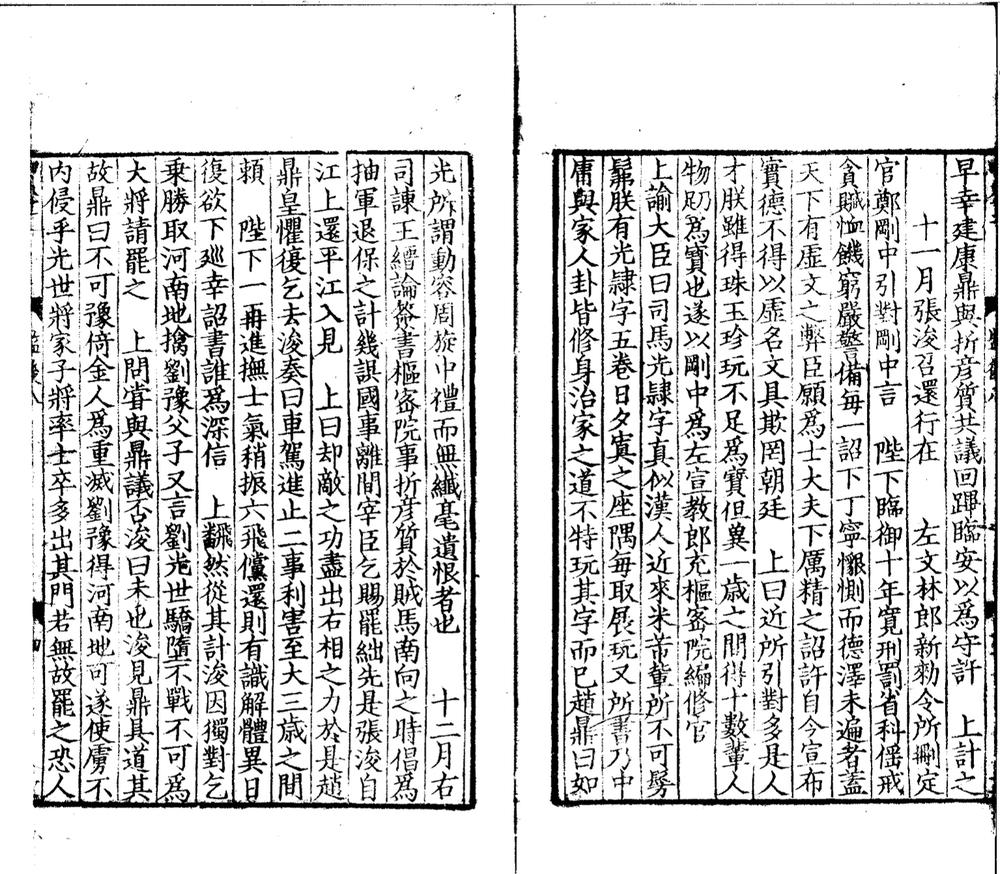 早幸建康鼎與折彦質共議回蹕臨安以爲守計　上計之
十一月張浚召還行在　左文林郎新勑令所刪定
官鄭剛中引對剛中言　陛下臨御十年寛刑罰省科徭戒
貪贓恤饑窮嚴警備毎一詔下丁寧懇惻而德澤未遍者蓋
天下有虛文之弊臣願爲士大夫下厲精之詔許自今宣布
實德不得以虛名文具欺罔朝廷　上曰近所引對多是人
才朕雖得珠玉珍玩不足爲寶但兾一歲之間得十數輩人
物乃爲寶也遂以剛中爲左宣教郎充樞宻院編修官
上諭大臣曰司馬光隷字真似漢人近來米芾輩所不可髣
髴朕有光隷字五卷日夕寘之座隅毎取展玩又所書乃中
庸與家人卦皆修身治家之道不特玩其字而已趙鼎曰如
光所謂動容周旋中禮而無纖毫遺恨者也　十二月右
司諫王縉論叅書樞宻院事折彦質於賊馬南向之時倡爲
抽軍退保之計幾誤國事離間宰臣乞賜罷絀先是張浚自
江上還平江入見　上曰却敵之功盡出右相之力於是趙
鼎皇懼復乞去浚奏曰車駕進止二事利害至大三歲之間
賴　陛下一再進撫士氣稍振六飛儻還則有識解體異日
復欲下廵幸詔書誰爲深信　上飜然從其計浚因獨對乞
乗勝取河南地擒劉豫父子又言劉光世驕隨不戰不可爲
大將請罷之　上問甞與鼎議否浚曰未也浚見鼎具道其
故鼎曰不可豫倚金人爲重滅劉豫得河南地可遂使虜不
内侵乎光世將家子將率士卒多出其門若無故罷之恐人